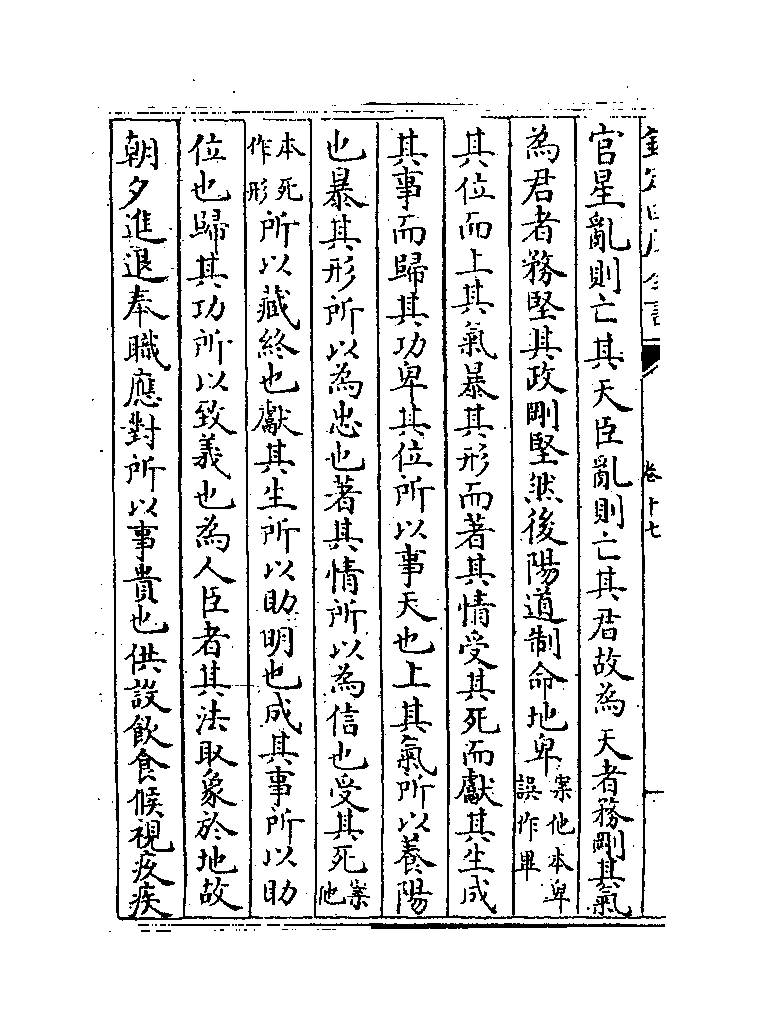 欽定四庫全書
卷十七
官星亂則亡其天臣亂則亡其君故為天者務剛其氣
為君者務堅其政剛堅然後陽道制命地卑案他本卑誤作畢
其位而上其氣暴其形而著其情受其死而獻其生成
其事而歸其功卑其位所以事天也上其氣所以養陽
也暴其形所以為忠也著其情所以為信也受其死案他
本死作形所以藏終也獻其生所以助明也成其事所以助
位也歸其功所以致義也為人臣者其法取象於地故
朝夕進退奉職應對所以事貴也供設飲食候視疢疾